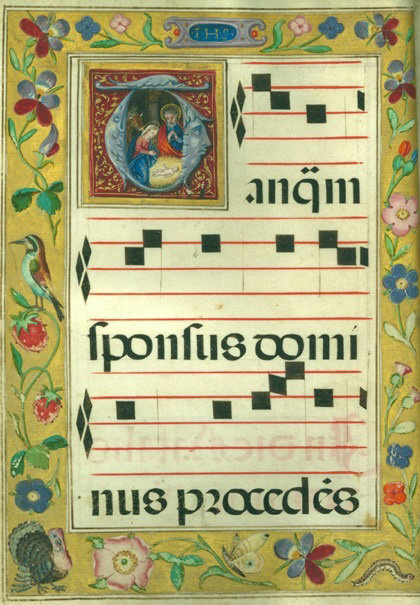 IHS
Tanq̃m
ſponſus domi
nus procedés